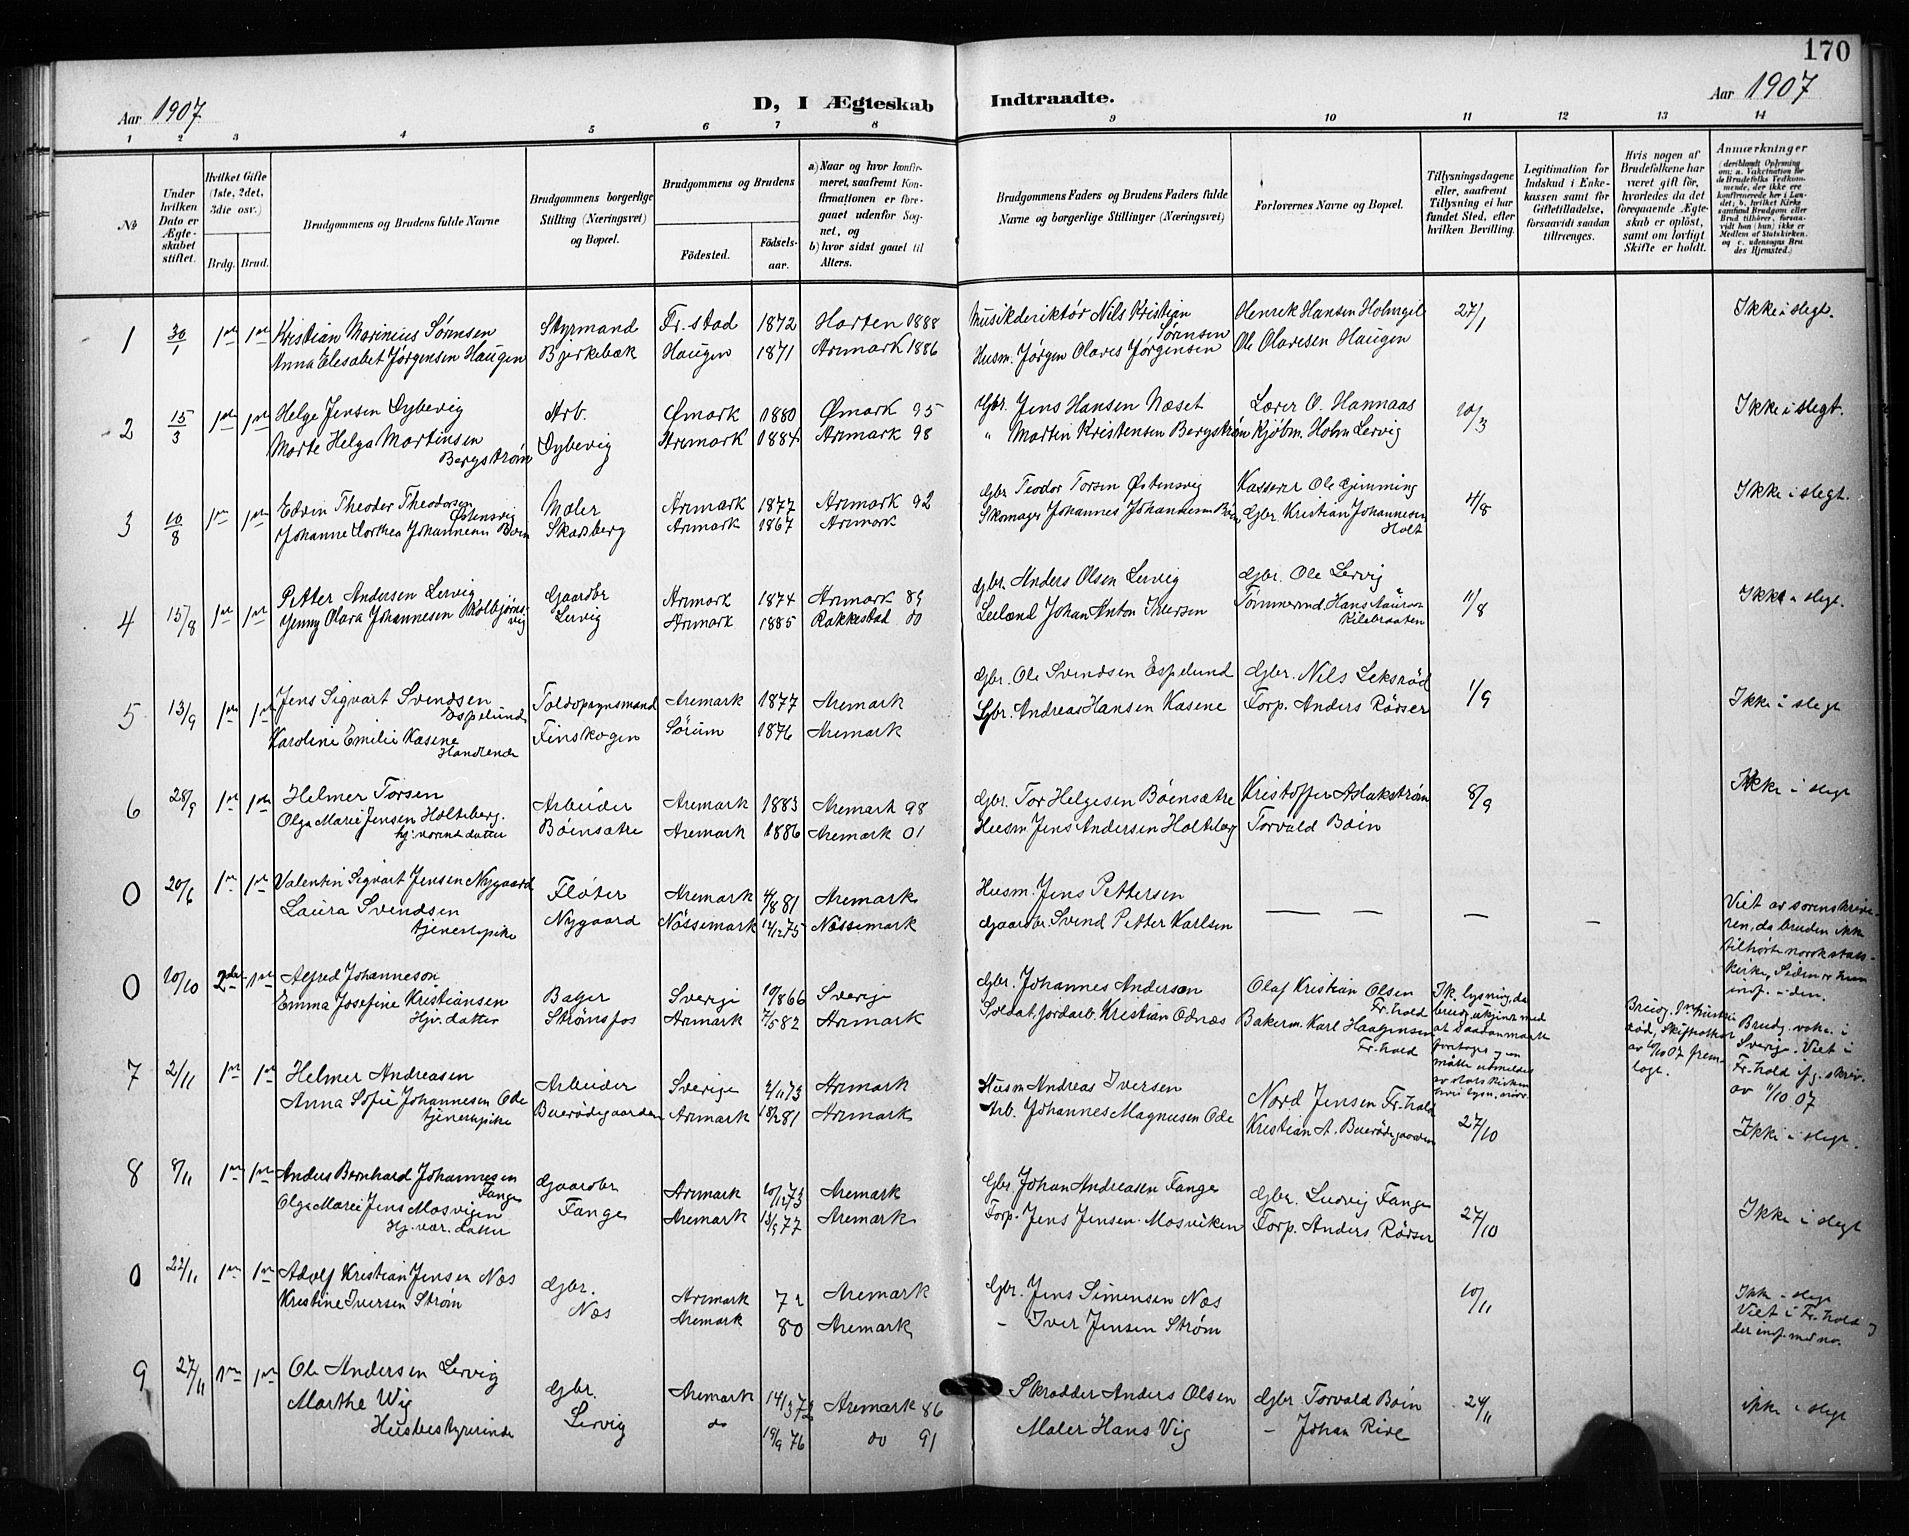 170
Aar 1907
D, I Ægteskab Indtraadte.
Aar 1907
1 2 3 4 5 6 7 8 9 10 11 12 13 14
No
Under hvilken Dato er Ægteskabet stiftet.
Hvilket Gifte (1ste, 2det, 3die osv.)
Brdg. Brud.
Brudgommens og Brudens fulde Navne
Brudgommens borgerlige Stilling (Næringsvei) og Bopæl.
Brudgommens og Brudens
Födested.
Födselsaar.
a) Naar og hvor konfirmeret, saafremt Konfirmationen er foregaaet udenfor Sognet, og
b) hvor sidst gaaet til Alters.
Brudgommens Faders og Brudens Faders fulde Navne og borgerlige Stillinger (Næringsvei)
Forlovernes Navne og Bopæl.
Tillysningsdagene eller, saafremt Tillysning ei har fundet Sted, efter hvilken Bevilling.
Legitimation for Indskud i Enkekassen samt for Giftetilladelse, forsaavidt saadan tiltrænges.
Hvis nogen af Brudefolkene har været gift för, hvorledes da det foregaaende Ægteskab er oplöst, samt om lovligt Skifte er holdt.
Anmærkninger
(deriblandt Oplysning om: a. Vakcination for de Brudefolks Vedkommende, der ikke ere konfirmerede her i Landet, b. hvilket Kirkesamfund Brudgom eller Brud tilhörer, forsaavidt han (hun) ikke er Medlem af Statskirken, og c. udensogns Brudes Hjemsted.)
1 30/1 1ste 1ste Kristian Marinius Sørensen Styrmand Fr.stad 1872 Horten 1888 Musikderiktør Nils Kristian Sørensen Henrik Hansen Holmgil 27/1 Ikke i slegt.
Anna Elesabet Jørgensen Haugen Bjerkebæk Haugen 1871 Aremark 1886 Husm. Jørgen Olaves Jørgensen Ole Olavesen Haugen
2 15/3 1ste 1ste Helge Jensen Dybevig Arb. Ømark 1880 Ømark 95 Gbr. Jens Hansen Næset Lærer O. Hannaas 10/3 Ikke i slegt.
Marte Helga Martinsen Bergstrøm Dybevig Aremark 1884 Aremark 98 " Martin Kristensen Bergstrøm Kjøbm. Holm Lervig
3 10/8 1ste 1ste Edvin Theodor Theodorsen Østensvig Maler Aremark 1877 Aremark 92 Gbr. Teodor Torsen Østensvig Kasserer Ole Gimming 4/8 Ikke i slegt.
Johanne Dorthea Johannesen Boen Skadsberg Aremark 1867 Aremark Skomager Johannes Johannesen Boen Gbr. Kristian Johannesen Holt
4 15/8 1ste 1ste Petter Andersen Lervig Gaardbr Aremark 1874 Aremark 89 Gbr. Anders Olsen Lervig Gbr. Ole Lervig 11/8 Ikke i slegt.
Jenny Olava Johannesen Kolbjørnsvig Lervig Aremark 1885 Rakkestad 00 Leilænd Johan Anton Iversen Tømmermd. Hans
5 13/9 1ste 1ste Jens Sigvart Svendsen Espelund Toldopsynsmand Aremark 1877 Aremark Gbr. Ole Svendsen Espelund Gbr. Nils Leksrød 1/9 Ikke i slegt
Karoline Emilie Kasene Handlende Finskogen Sørum 1876 Aremark Gbr. Andreas Hansen Kasene Forp. Anders Rødser
6 28/9 1ste 1ste Helmer Torsen Arbeider Aremark 1883 Aremark 98 Gbr. Tor Helgesen Böensætre Kristoffer Aslakstrøm 8/9 Ikke i slegt
Olga Marie Jensen Holteberg. hj.værend datter Böensætre Aremark 1886 Aremark 01 Husm Jens Andersen Holteberg Torvald Boin
0 20/6 1ste 1ste Valentin Sigvart Jensen Nygaard Fløter Aremark 4/8 81 Aremark Husm. Jens Pettersen
Laura Svendsen tjenestpike Nygaard Nössemark 12/12 75 Nössemark Gaardbr. Svend Petter Karlsen — — — —
Viet av sorenskriveren, da bruden ikke tilhørte norsk statskirke, Siden er hun inf. i den.
0 10/10 2den 1ste Alfred Johanneson Bager Sverige 10/8 66 Sverige Gbr. Johannes Anderson Olaf Kristian Olsen Fr.hald
Emma Josefine Kristiansen Hjv. datter Strømsfos Aremark 7/5 82 Aremark Soldat, jordarb. Kristian Odnæs Bakerm. Karl Haagensen Fr.hald
Ik. lysning, da
Sverige. Viet i Fr.hald af sg. skriv. av 11/10 07
7 2/11 1ste 1ste Helmer Andreasen Arbeider Sverige 2/11 73 Aremark Husm Andreas Iversen Nord Jensen Fr.hald 27/10 Ikke i slegt.
Anna Sofie Johannesen Ode tjenestpike Buerødsgaarden Aremark 18/2 81 Aremark Arb. Johannes Magnusen Ode Kristian A. Buerødsgaarden
8 8/11 1ste 1ste Anders Bernhard Johannesen Fange Gaardbr Aremark 10/12 73 Aremark Gbr Johan Andreasen Fange Gbr. Ludvig Fange 27/10 Ikke i slegt
Olga Marie Jens Mosvigen Hj. vær. datter Fange Aremark 13/9 77 Aremark Forp. Jens Jensen Mosviken Forp. Anders Rødser
0 22/11 1ste 1ste Adolf Kristian Jensen Næs Gbr. Aremark 72 Aremark Gbr. Jens Simensen Næs 10/11 Ikke i slegt
Kristine Iversen Strøm Næs Aremark 80 Aremark - Iver Jensen Strøm Viet i Fr.hald og der inf. med no.
9 27/11 1ste 1ste Ole Andersen Lervig Gbr. Aremark 14/3 72 Aremark 86 Skrædder Anders Olsen Gbr Torvald Boin 24/11 ikke i slegt
Marthe Wig Husbestyrerinde Lervig do 19/9 76 do 91 Maler Hans Vig - Johan Rive